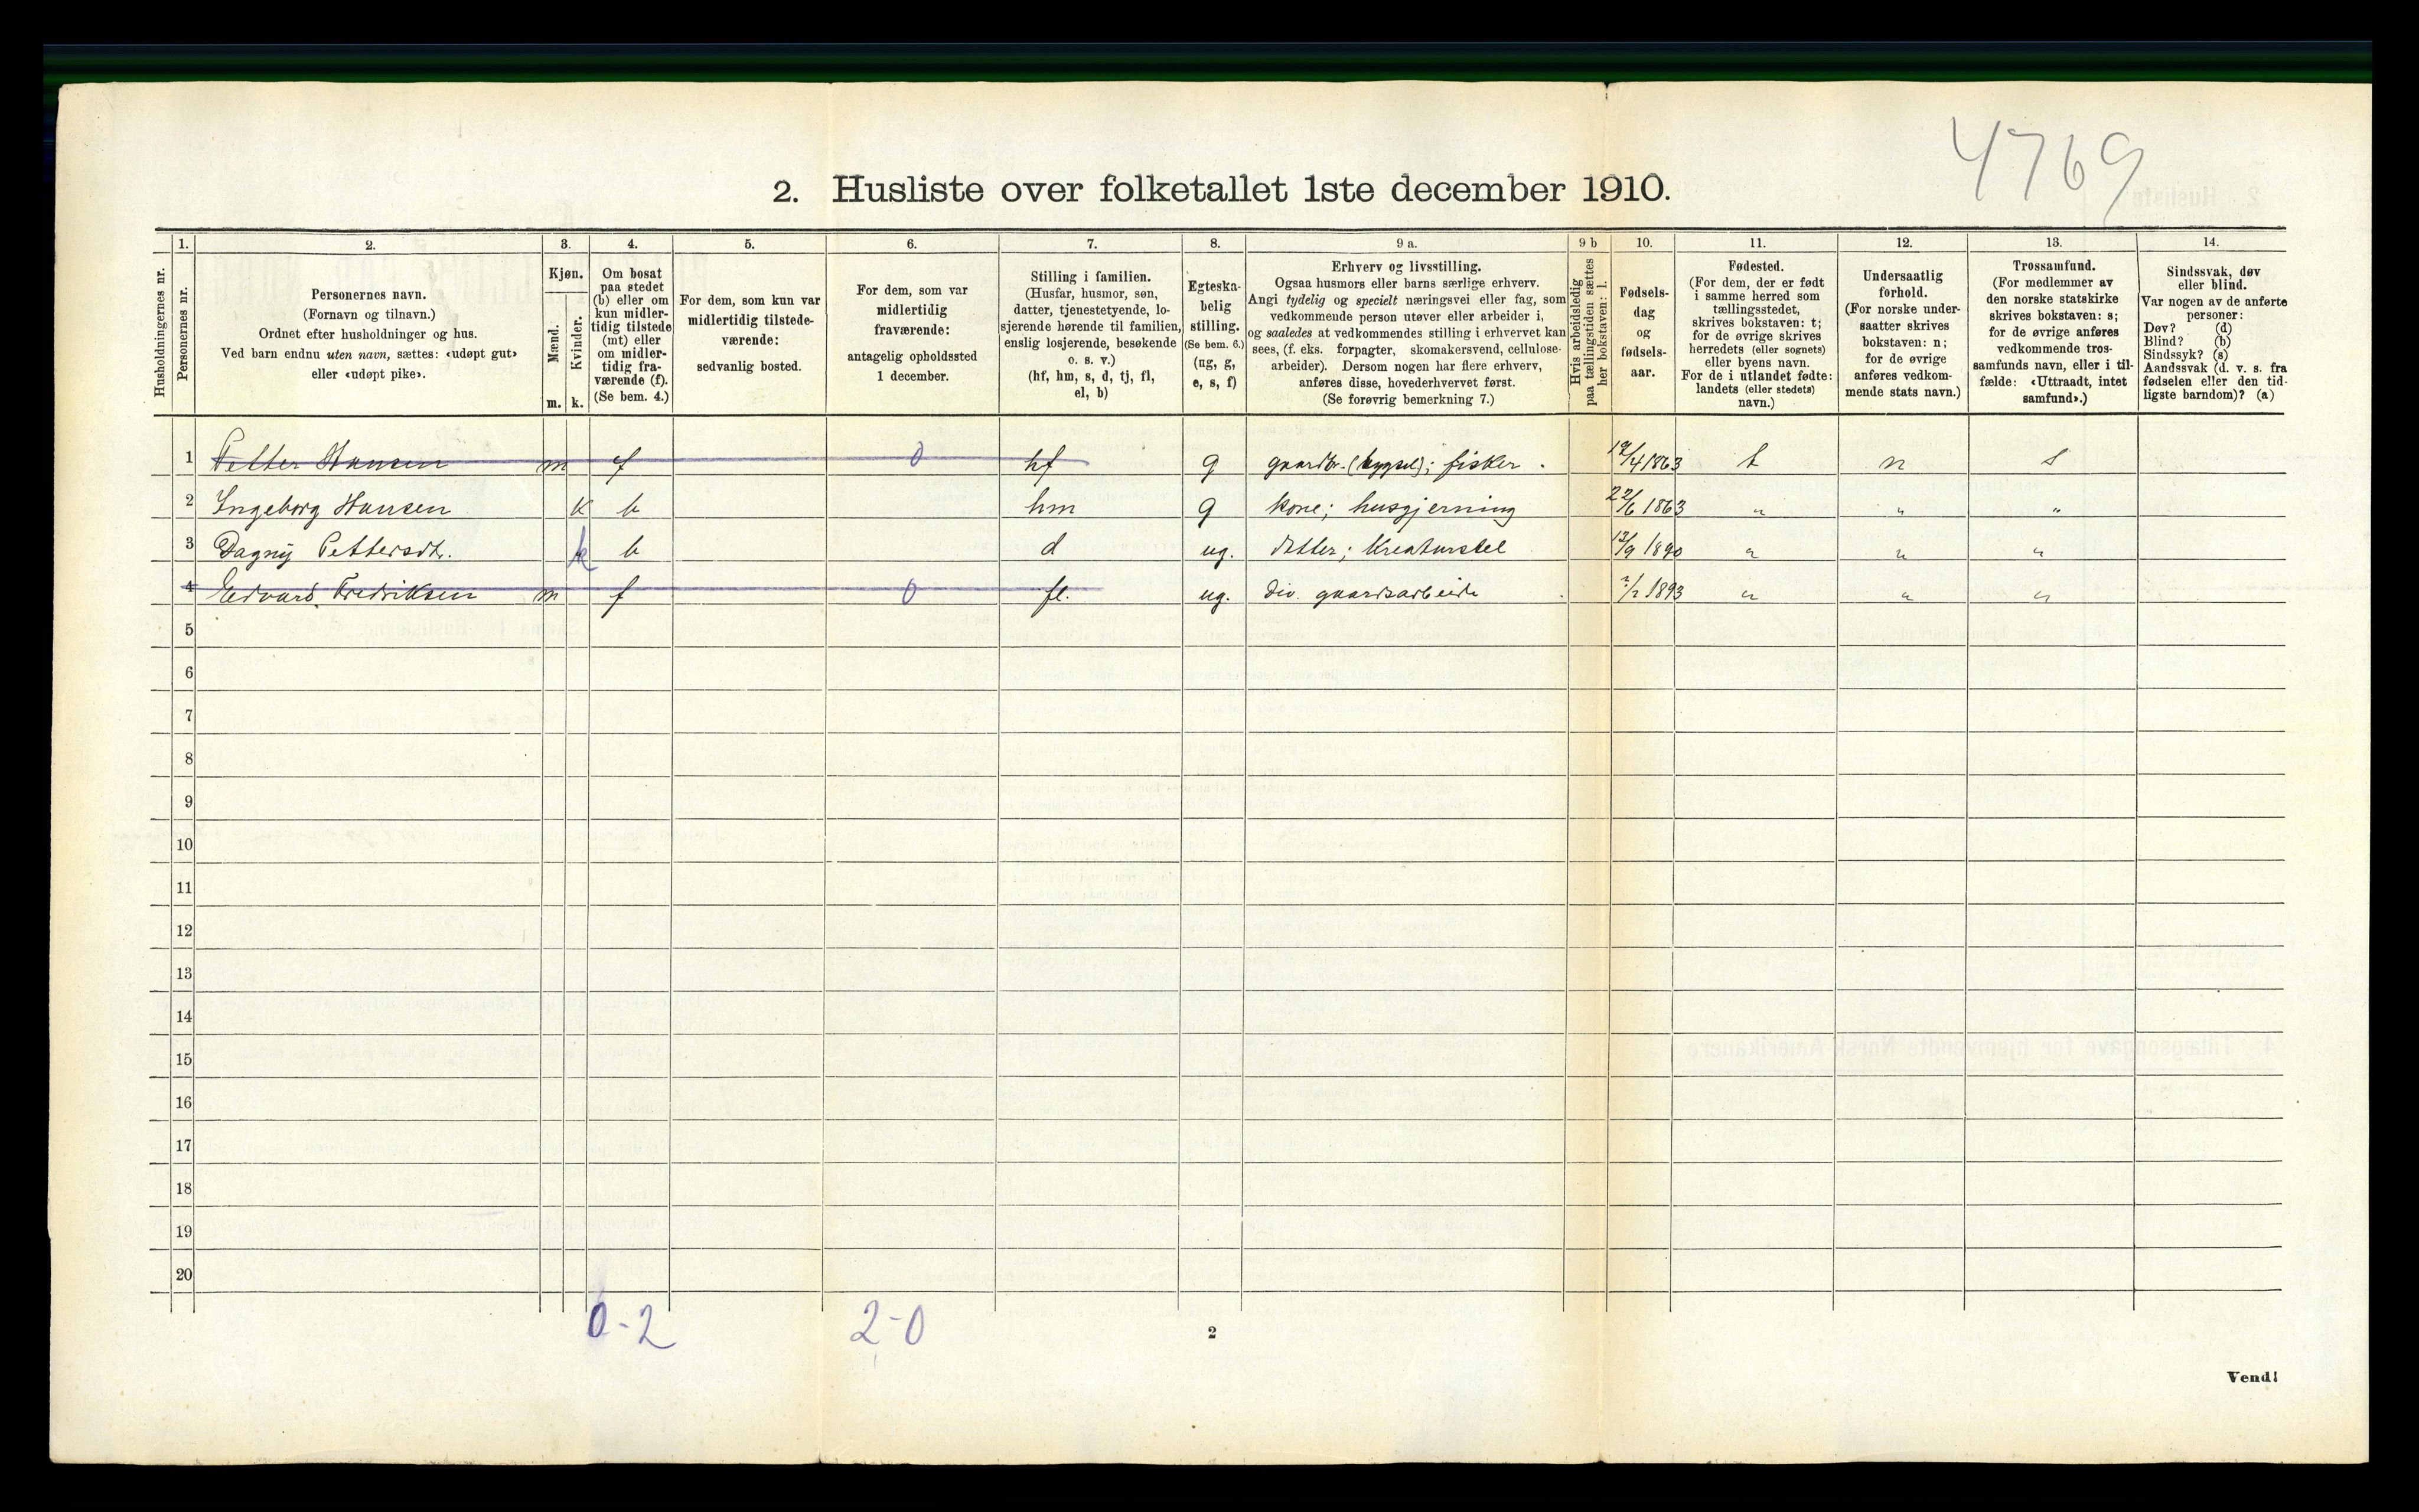 4769
2. Husliste over folketallet 1ste december 1910.
Husholdningernes nr.
1.
Personernes nr.
2.
Personernes navn.
(Fornavn og tilnavn.)
Ordnet efter husholdninger og hus.
Ved barn endnu uten navn, sættes: «udøpt gut»
eller «udøpt pike».
3.
Kjøn.
Mænd.
Kvinder.
m. k.
4.
Om bosat
paa stedet
(b) eller om
kun midler-
tidig tilstede
(mt) eller
om midler-
tidig fra-
værende (f).
(Se bem. 4.)
5.
For dem, som kun var
midlertidig tilstede-
værende:
sedvanlig bosted.
6.
For dem, som var
midlertidig
fraværende:
antagelig opholdssted
1 december.
7.
Stilling i familien.
(Husfar, husmor, søn,
datter, tjenestetyende, lo-
sjerende hørende til familien,
enslig losjerende, besøkende
o. s. v.)
(hf, hm, s, d, tj, fl,
el, b)
8.
Egteska-
belig
stilling.
(Se bem. 6.)
(ug, g,
e, s, f)
9 a.
Erhverv og livsstilling.
Ogsaa husmors eller barns særlige erhverv.
Angi tydelig og specielt næringsvei eller fag, som
vedkommende person utøver eller arbeider i,
og saaledes at vedkommendes stilling i erhvervet kan
sees, (f. eks. forpagter, skomakersvend, cellulose-
arbeider). Dersom nogen har flere erhverv,
anføres disse, hovederhvervet først.
(Se forøvrig bemerkning 7.)
9 b
Hvis arbeidsledig
paa tællingstiden sættes
her bokstaven: l.
10.
Fødsels-
dag
og
fødsels-
aar.
11.
Fødested.
(For dem, der er født
i samme herred som
tællingsstedet,
skrives bokstaven: t;
for de øvrige skrives
herredets (eller sognets)
eller byens navn.
For de i utlandet fødte:
landets (eller stedets)
navn.)
12.
Undersaatlig
forhold.
(For norske under-
saatter skrives
bokstaven: n;
for de øvrige
anføres vedkom-
mende stats navn.)
13.
Trossamfund.
(For medlemmer av
den norske statskirke
skrives bokstaven: s;
for de øvrige anføres
vedkommende tros-
samfunds navn, eller i til-
fælde: «Uttraadt, intet
samfund».)
14.
Sindssvak, døv
eller blind.
Var nogen av de anførte
personer:
Døv? (d)
Blind? (b)
Sindssyk? (s)
Aandssvak (d. v. s. fra
fødselen eller den tid-
ligste barndom)? (a)
1 Petter Hansen m f 0 hf g gaardbr. (bygsel); fisker. 19/4 1863 t n s
2 Ingeborg Hansen k b hm g kone; husgjerning 22/6 1863 " " "
3 Dagny Pettersdt. k b d ug. datter; kreaturstel 12/9 1890 " " "
4 Edvard Fredriksen m f 0 fl. ug. div. gaardsarbeide 1893 " " "
5
6
7
8
9
10
11
12
13
14
15
16
17
18
19
20
0-2 2-0
2
Vend!